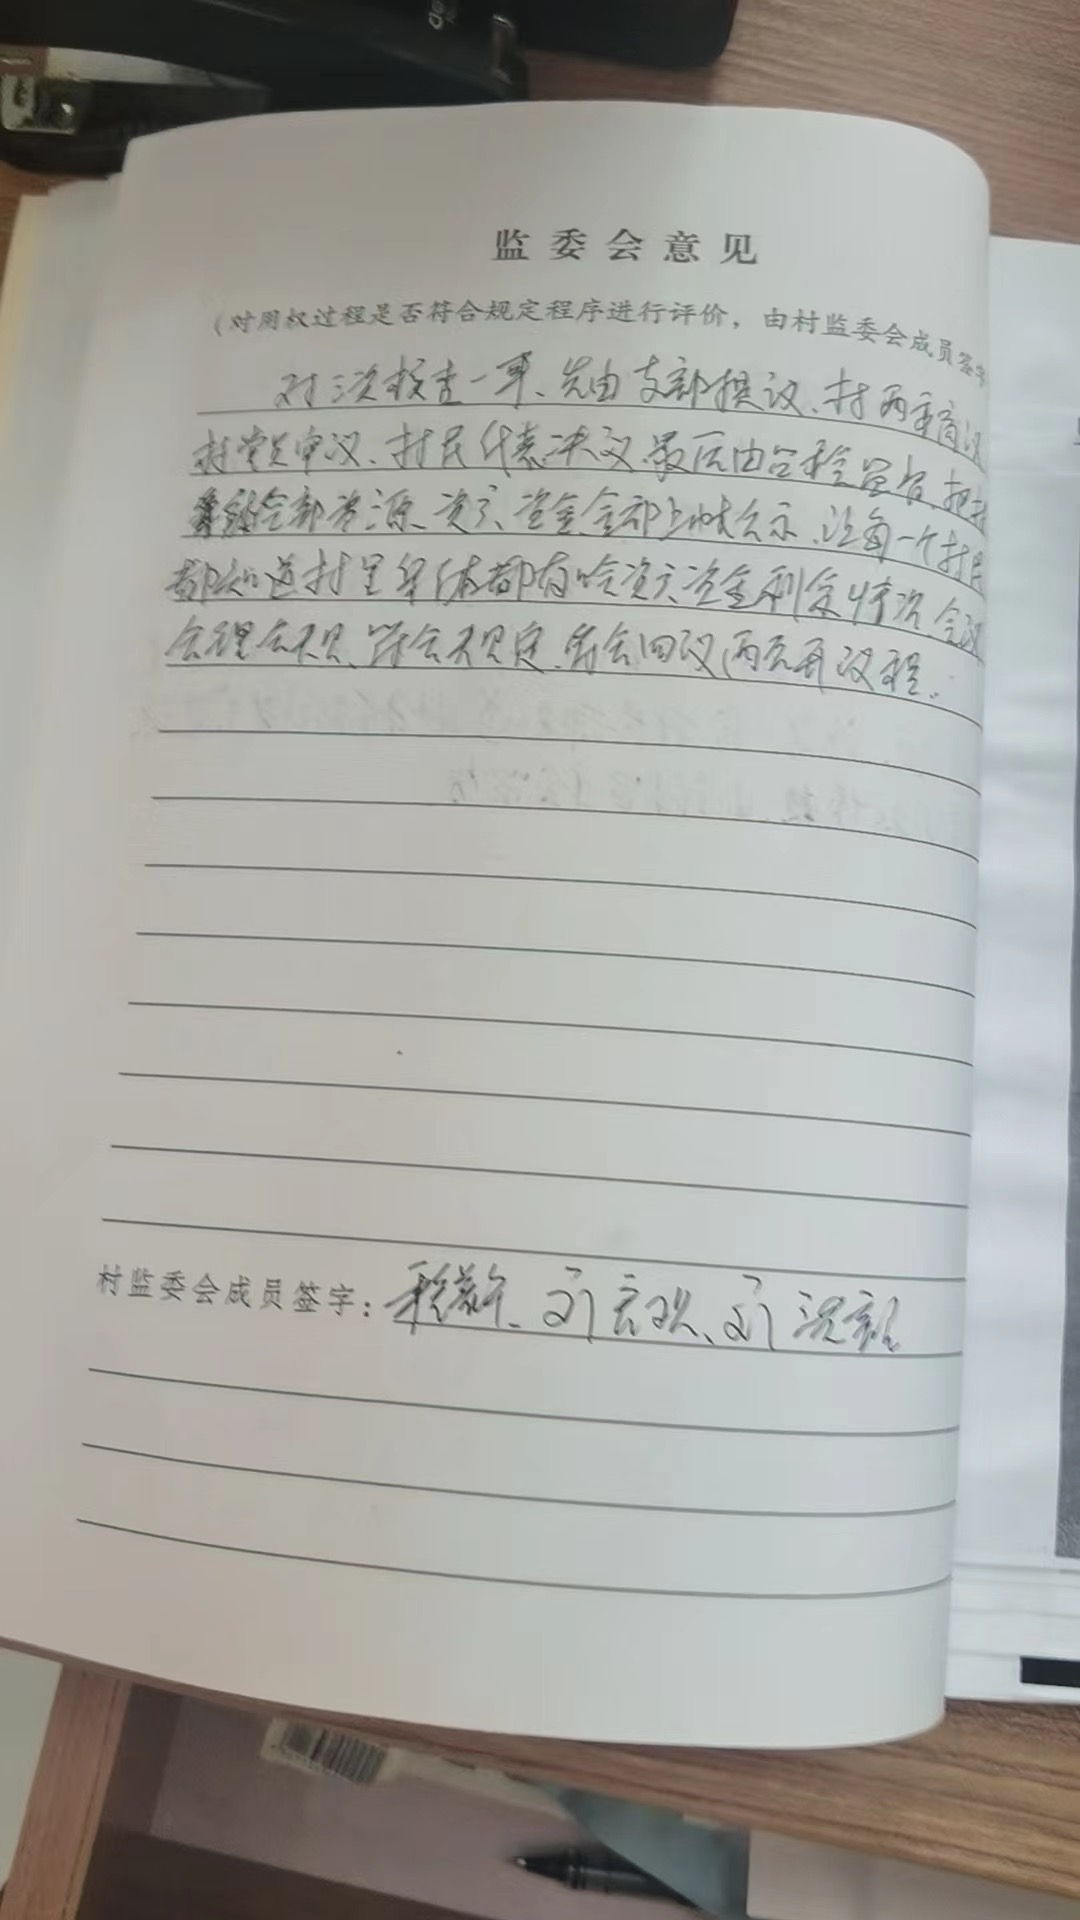 监委会意见
(对用权过程是否符合规定程序进行评价，由村监委会成员签字
对三资核查一事、先由支部提议、村两委商议
村党员审议、村民代表决议、最后由
全部资源、资产、资金全部上墙公示、让每一个村民
都知道村里集体都有啥资产资金剩余情况、会议
合理合规、符合规定、符合四议两公开议程.
村监委会成员签字：